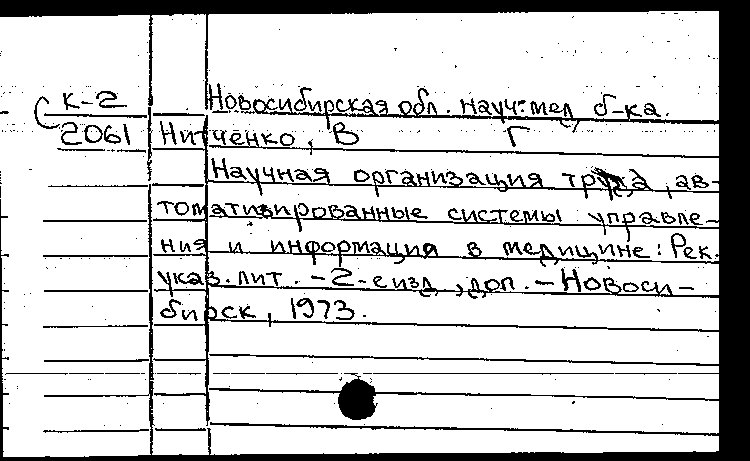 К-2 Новосибирская обл. науч.-мед. б-ка.
2061 Нитченко, В Г
Научная организация труда, ав-
томатизированные системы управле-
ния и информация в медицине: Рек.
указ. лит. - 2-е изд., доп. - Новоси-
бирск, 1973.